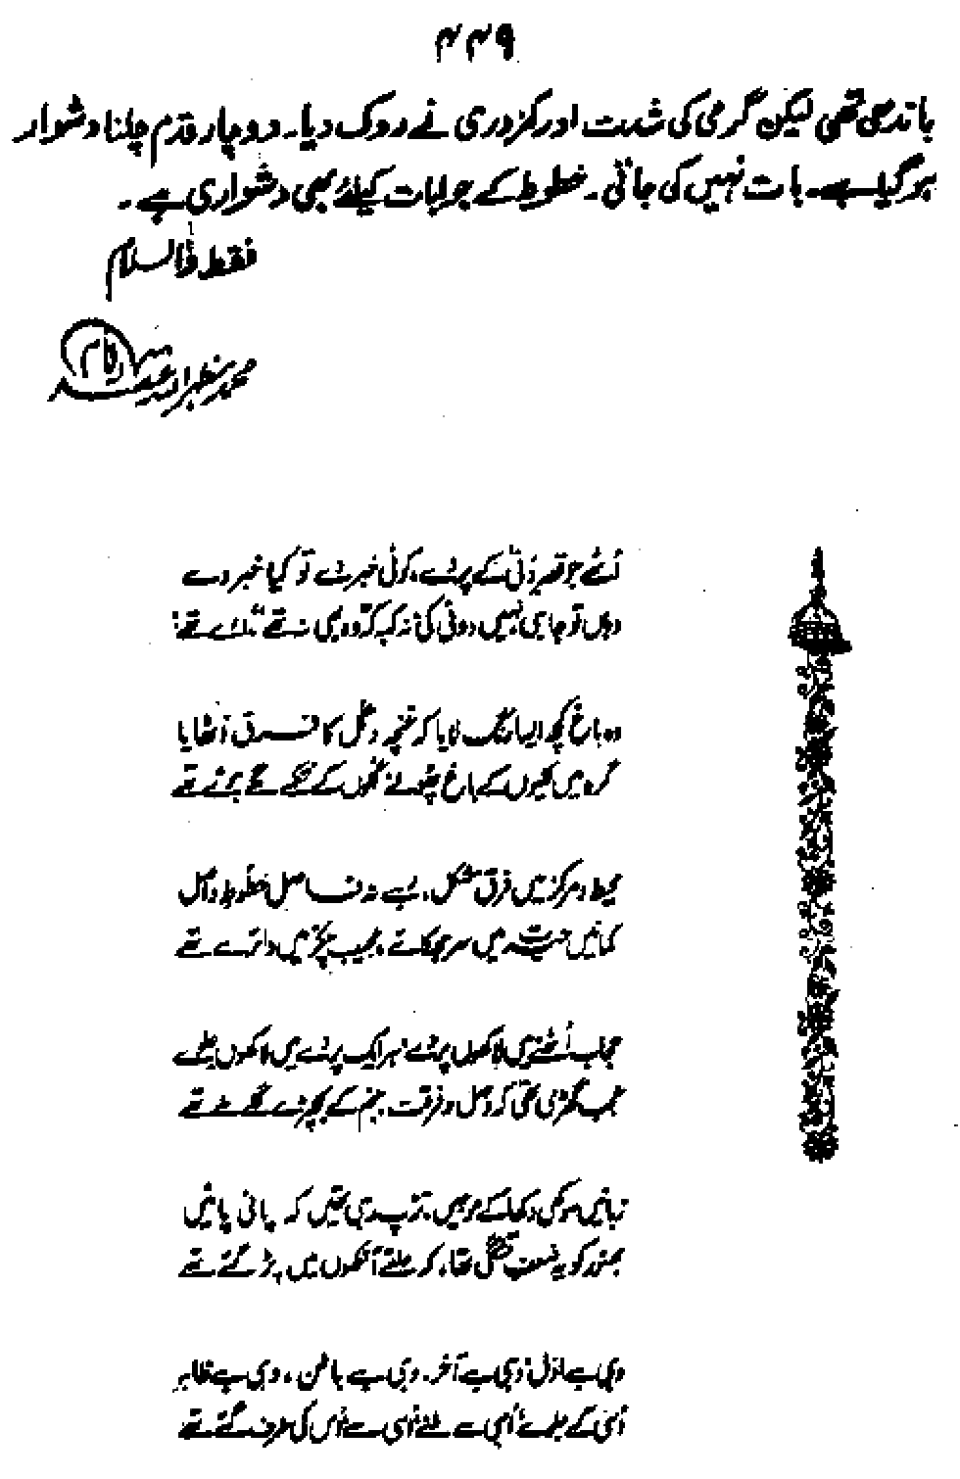 ۴۴۹
باندھی تھی لیکن گرمی کی شدت اور کمزوری نے روک دیا۔ دو چار قدم چلنا دشوار
ہو گیا ہے۔ بات نہیں کی جاتی۔ خطوط کے جوابات کیلئے بھی دشواری ہے۔
فقط والسلام
محمد مظہر اللہ
اُٹھے جو قصرِ دنیٰ کے پردے، کوئی خبر دے تو کیا خبر دے
وہاں تو جا ہی نہیں دوئی کی نہ کہہ کہ وہ بھی نہ تھے ارے تھے!
وہ باغ کچھ ایسا رنگ لایا کہ غنچہ و گل کا فرق اٹھایا
گرہ میں کلیوں کے باغ پھولے گلوں کے تکمے لگے ہوئے تھے
محیط و مرکز میں فرق مشکل، رہے نہ فاصل خطوطِ واصل
کمانیں حیرت میں سر جھکائے، عجیب چکر میں دائرے تھے
حجاب اُٹھنے میں لاکھوں پردے ہر ایک پردے میں لاکھوں جلوے
عجب گھڑی تھی کہ وصل و فرقت جنم کے بچھڑے گلے ملے تھے
زبانیں سوکھی دکھا کے موجیں، تڑپ رہی تھیں کہ پانی پائیں
بھنور کو یہ ضعفِ تشنگی تھا، کہ حلقے آنکھوں میں پڑ گئے تھے
وہی ہے اوّل وہی ہے آخر۔ وہی ہے باطن، وہی ہے ظاہر
اُسی کے جلوے اُسی سے ملنے اُسی سے اُس کی طرف گئے تھے